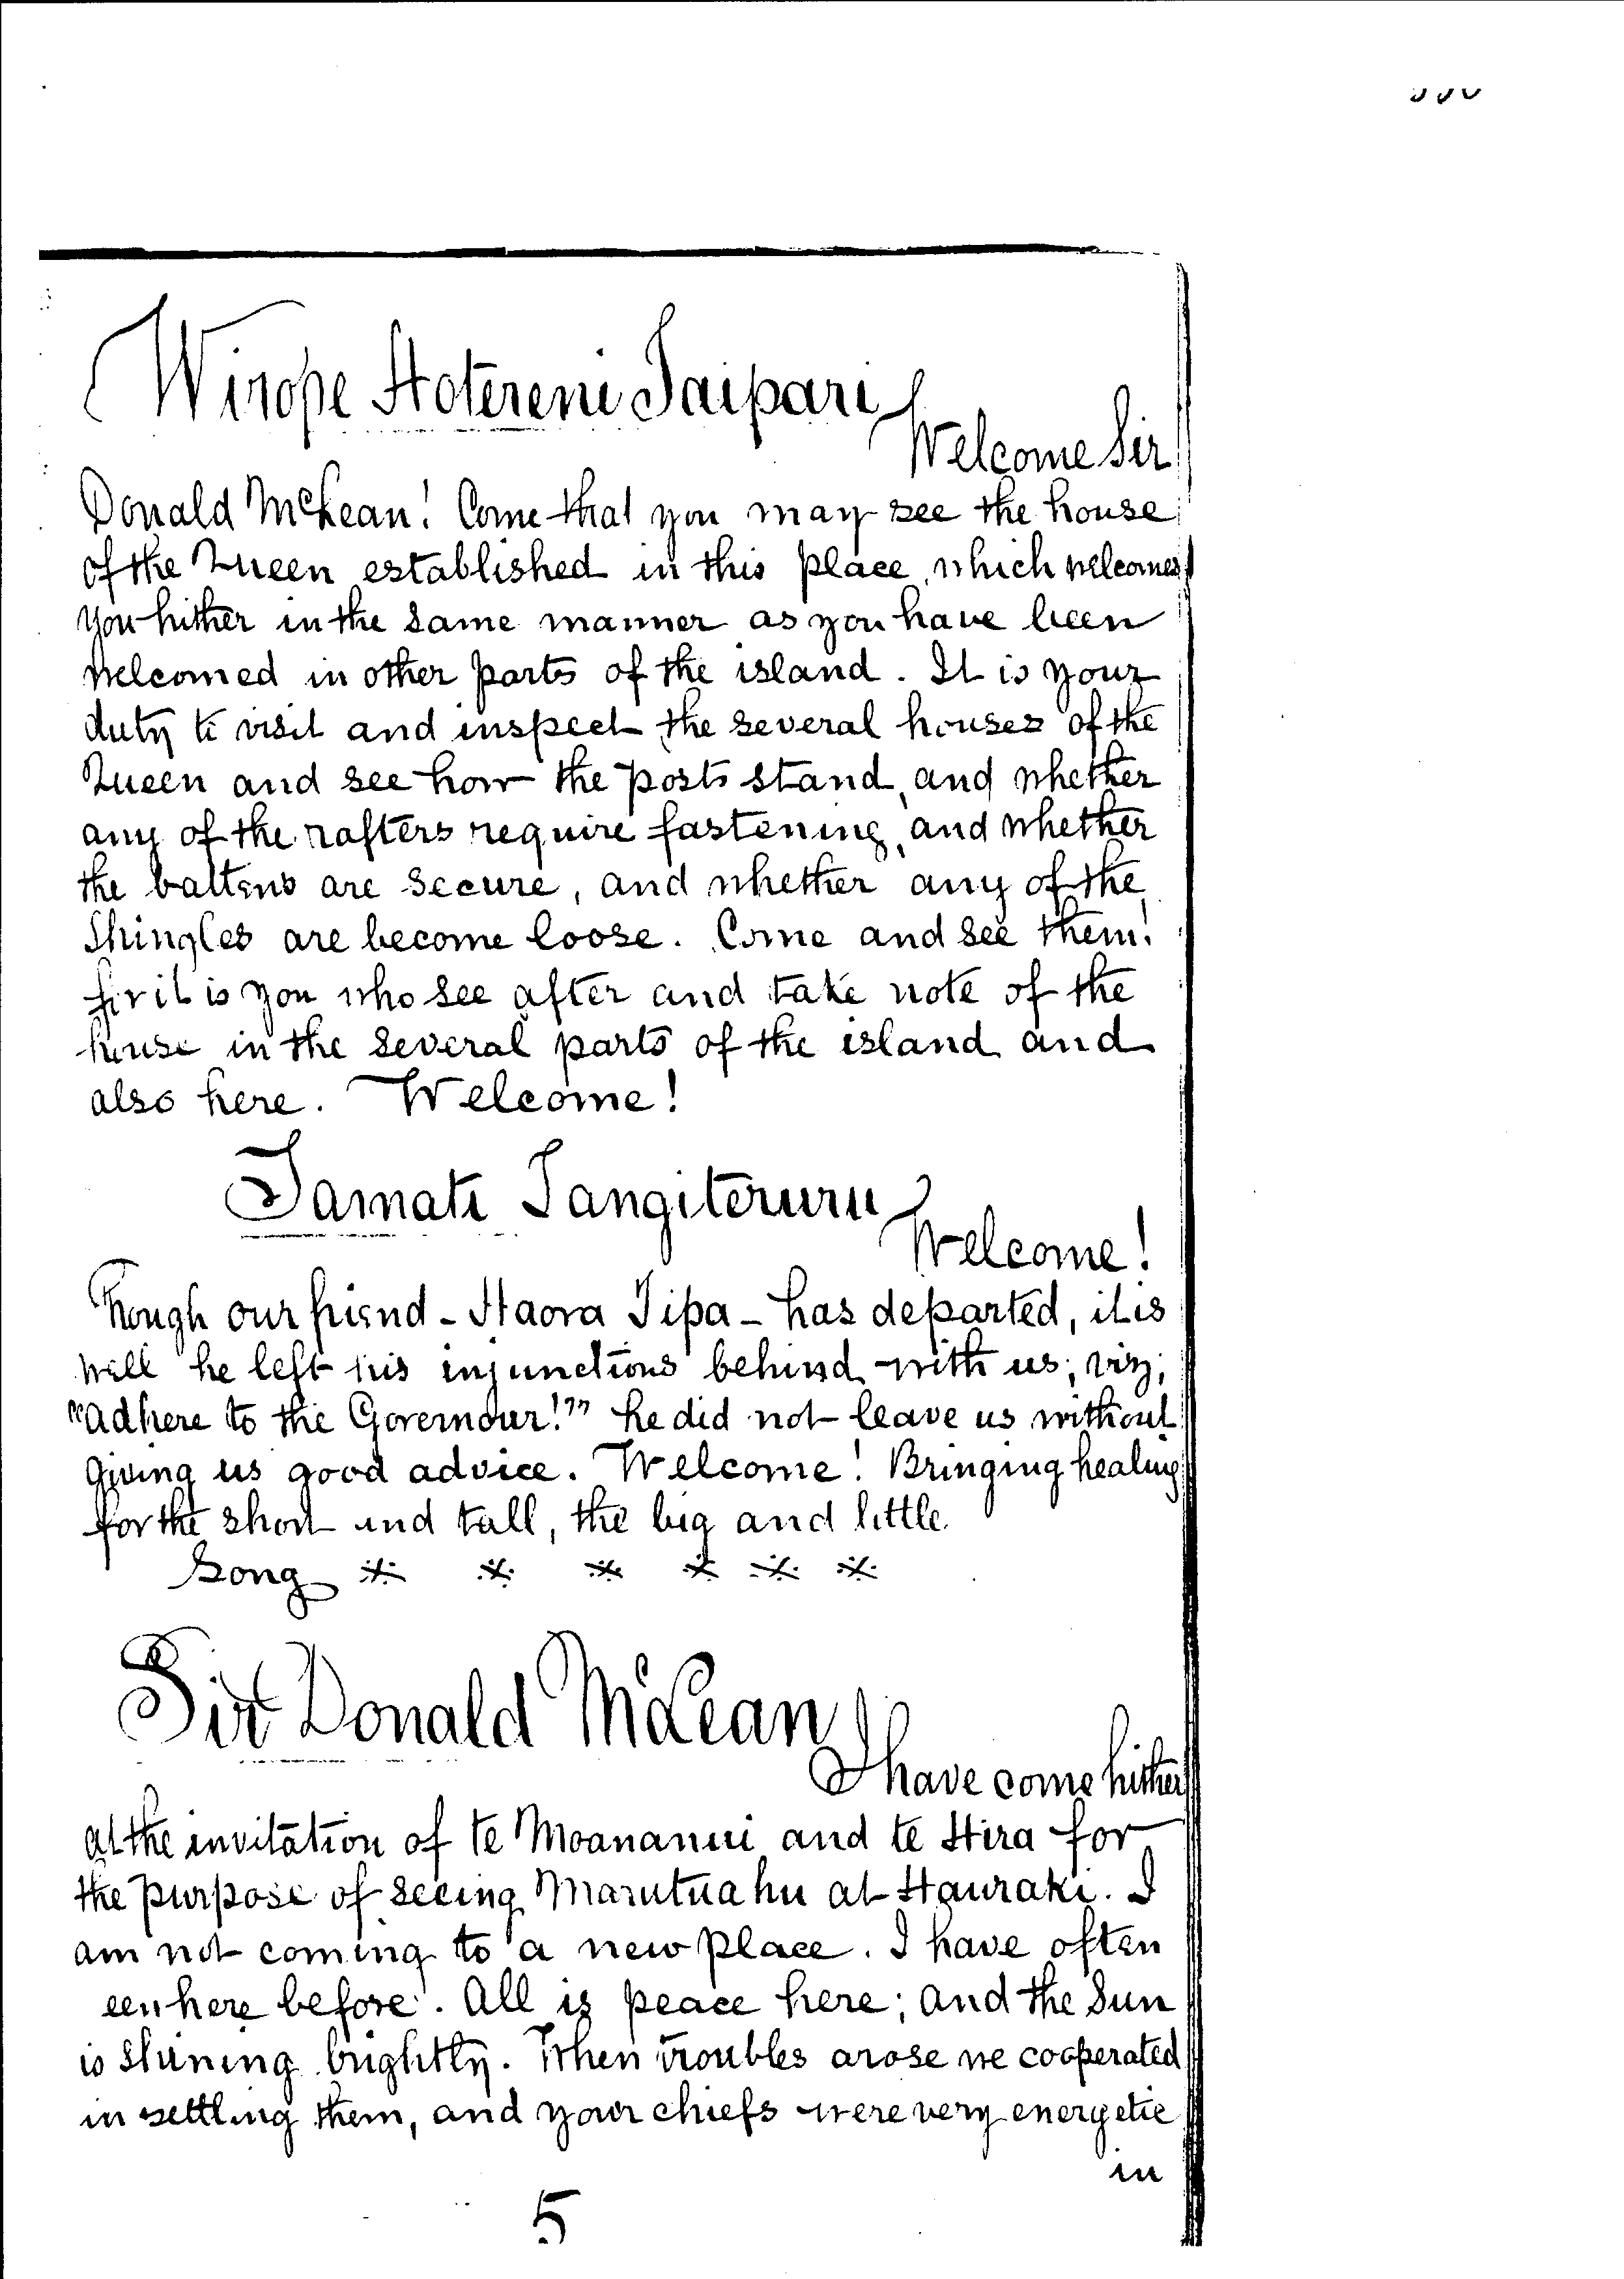 Wirope Hotereni Taipari
Welcome Sir
Donald McLean! Come that you may see the house
of the Queen established in this place, which welcomes
you hither in the same manner as you have been
welcomed in other parts of the island. It is your
duty to visit and inspect the several houses of the
Queen and see how the posts stand, and whether
any of the rafters require fastening, and whether
the battens are secure, and whether any of the
Shingles are become loose. Come and see them!
for it is you who see after and take note of the
house in the several parts of the island and
also here. Welcome!
Tamati Tangiteruru
Welcome!
Though our friend - Haora Tipa - has departed, it is
well he left his injunctions behind with us; viz;
"Adhere to the Governour!" he did not leave us without
giving us good advice. Welcome! Bringing healing
for the short and tall, the big and little.
Song * * * * * *
Sir Donald McLean
I have come hither
at the invitation of te Moananui and te Hira for
the purpose of seeing Marutuahu at Hauraki. I
am not coming to a new place. I have often
een here before. All is peace here; and the Sun
is shining brightly. When troubles arose we cooperated
in settling them, and your chiefs were very energetic
in
5